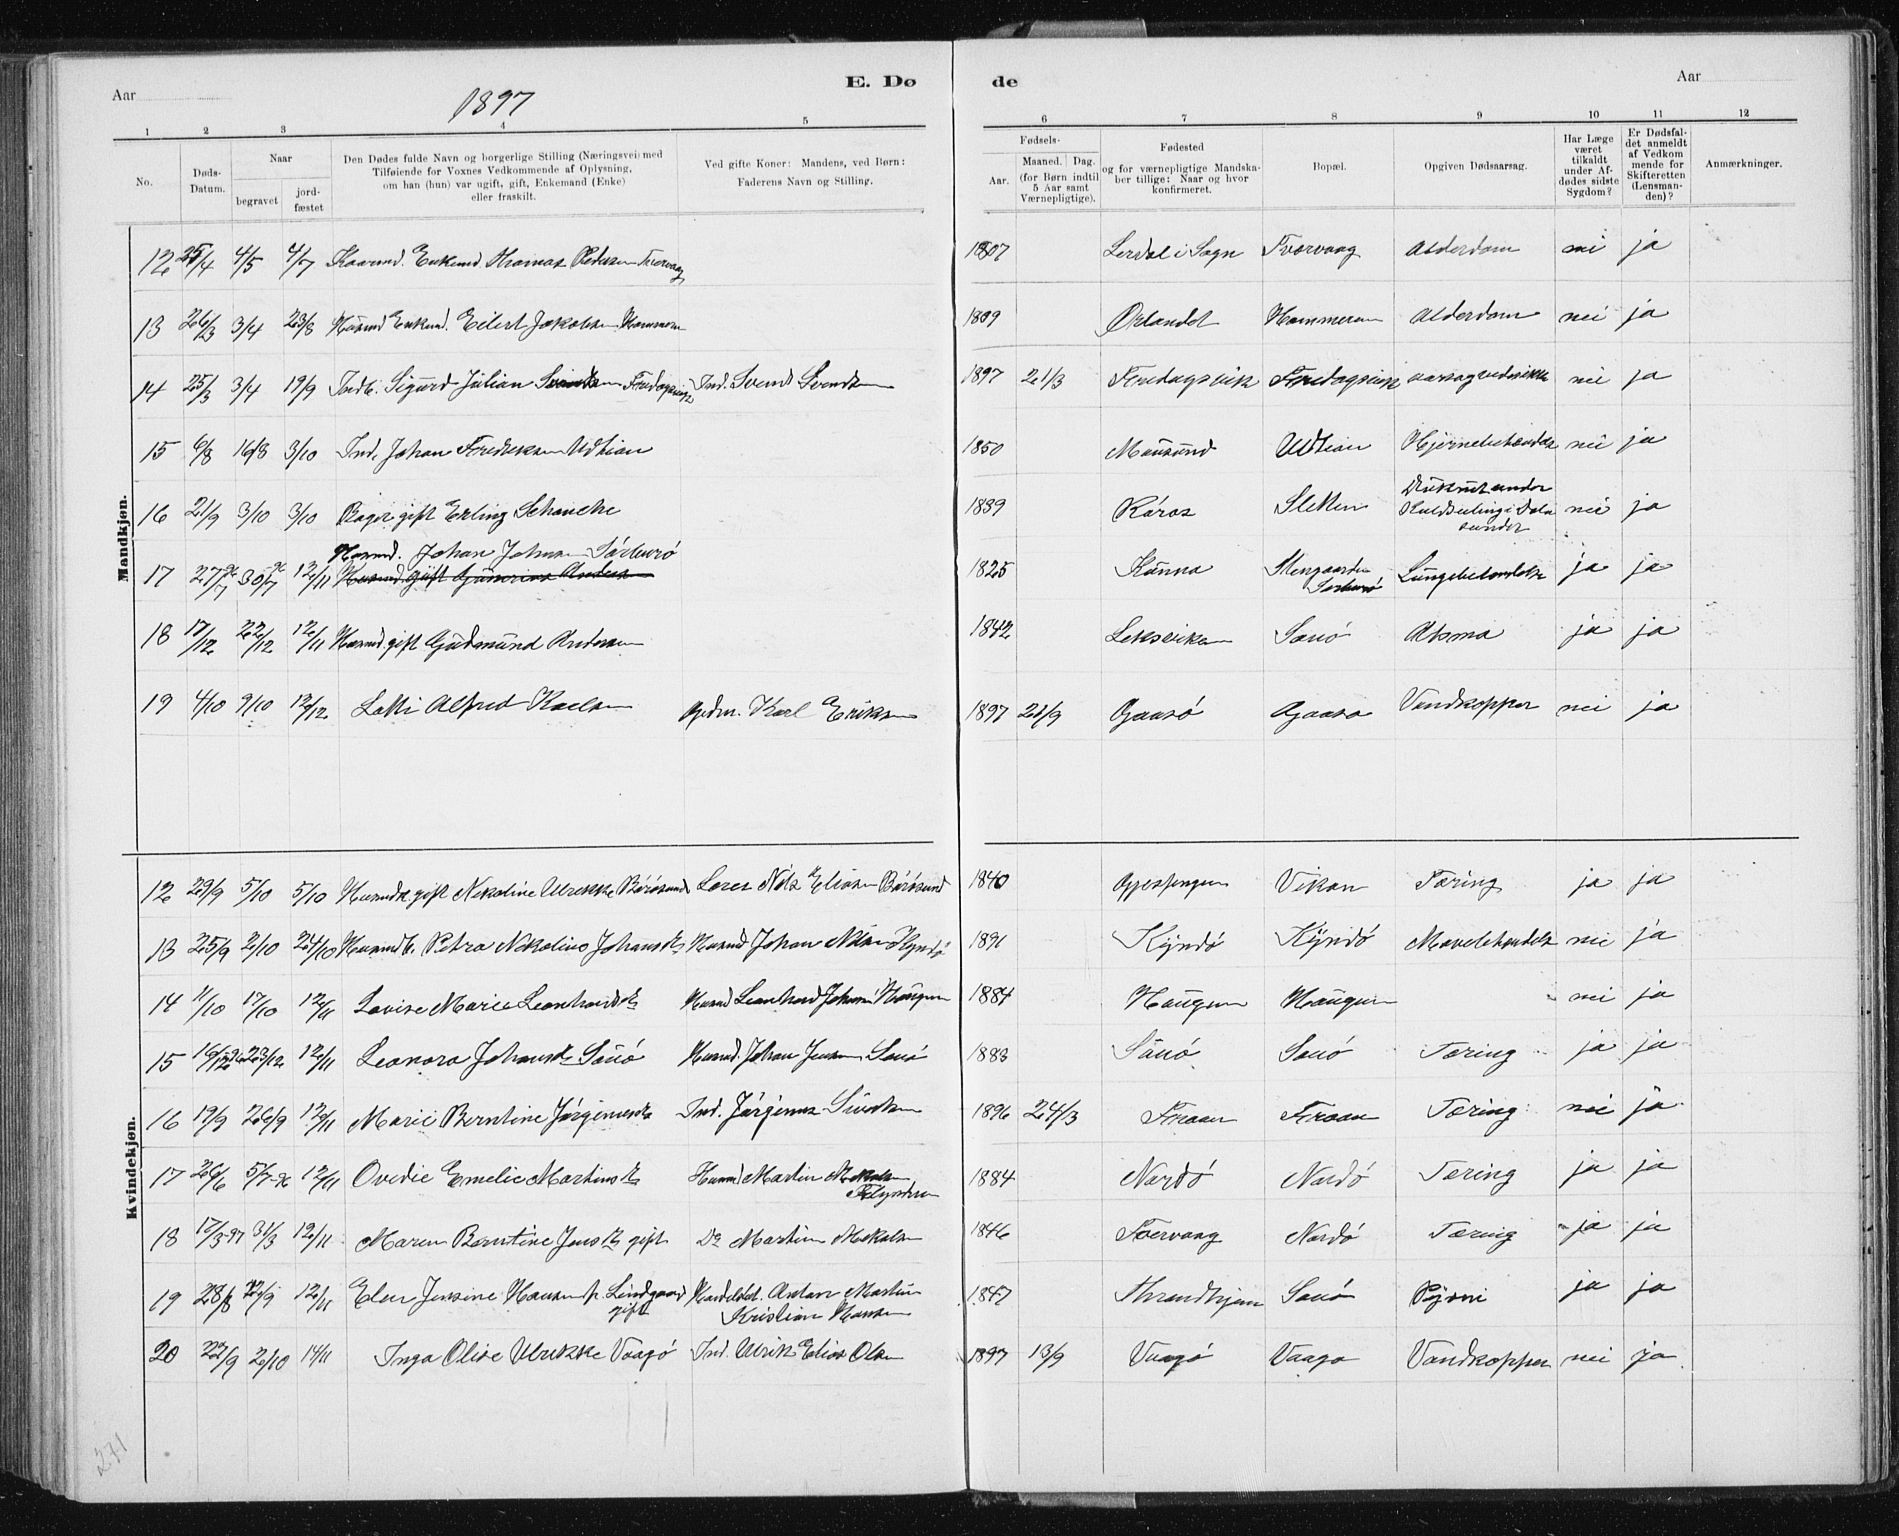 Aar
1897
E. Dø
de
Aar
1 2 3 4 5 6 7 8 9 10 11 12
No.
Døds-Datum.
Naar
begravet
jord-fæstet
Den Dødes fulde Navn og borgerlige Stilling (Næringsvei) med
Tilføiende for Voxnes Vedkommende af Oplysning,
om han (hun) var ugift, gift, Enkemand (Enke)
eller fraskilt.
Ved gifte Koner: Mandens, ved Børn:
Faderens Navn og Stilling.
Fødsels-
Aar.
Maaned. Dag.
(for Børn indtil
5 Aar samt
Værnepligtige).
Fødested
og for værnepligtige Mandska-
ber tillige: Naar og hvor
konfirmeret.
Bopæl.
Opgiven Dødsaarsag.
Har Læge
været
tilkaldt
under Af-
dødes sidste
Sygdom?
Er Dødsfal-
det anmeldt
af Vedkom
mende for
Skifteretten
(Lensman-
den)?
Anmærkninger.
Mandkjøn.
12 25/4 4/5 4/7 Enkemd Thomas Pedersen 1807 Lerdal i Sogn Alderdom nei ja
13 26/3 3/4 23/8 Husmd Enkmd. Eilert Jakobsen Hammern 1809 Ørlandet Hammeren Alderdom nei ja
14 25/3 3/4 19/9 Indb. Sigurd Julian Svendsen Ind. Svend Svendsen 1897 21/3 nei ja
15 6/8 16/8 3/10 Ind. Johan Fredriksen Udtian 1850 Mausund Udtian nei ja
16 21/9 3/10 3/10 Bager gift Erling Schancke 1839 Røros Sletten Druknet under
Kuldseiling i Dola
sundet nei ja
Husmd. Johan Johnsen Sørburø
17 27/7 30/7 12/11 Husmd gift Gunerius Andersen 1825 Kunna
Sørburø Lungebetændelse ja ja
18 17/12 22/12 12/11 Husmd. gift Gudmund Andersen 1842 Leksviken Sauø Astma ja ja
19 4/10 9/10 12/12 Alfred Karlsen Gbdm. Karl Eriksen 1897 21/9 Gaasø Gaasø Vandkopper nei ja
Kvindekjøn.
12 29/9 5/10 5/10 Husmdk. gift Nikoline Ulrikke Børøsund Nils Eliasen Børøsund 1840 Vikan Tæring ja ja
13 25/9 2/10 24/10 Husmdb. Petra Nikolina Johansdt Husmd Johan Nilsen Kyndø 1891 Kyndø Kyndø nei ja
14 11/10 17/10 12/11 Lovise Marie Leonhardsdt Husmd Leonhard Johansen Haugen 1884 Haugen Haugen nei ja
15 16/12 96 23/12 12/11 Leonora Johansdt Sauø Husmd. Johan Jensen Sauø 1883 Sauø Sauø Tæring ja ja
16 19/9 26/9 12/11 Marie Berntine Jørginusdt Ind. Jørginus Sivertsen 1896 24/3 Froan Froan Tæring nei ja
17 26/6 5/7 12/11 Ovidie Emelie Martinsdt Husmd Martin Mikalsen
Flyndren 1884 Nordø Nordø Tæring ja ja
18 17/3-97 31/3 12/11 Maren Berntine Jensdt gift Do Martin Mikalsen 1846 Nordø Tæring ja ja
19 28/8 12/11 Elen Jensine Hansen f. Lindgaard
gift Handelsbt. Anton Martin
Kristian Hansen 1847 Thrandhjem Sauø ja ja
20 22/9 2/10 14/11 Inga Olise Ulrikke Vaagø Ind. Ulrik Elias Olsen 1897 13/9 Vaagø Vaagø Vandkopper nei ja
271